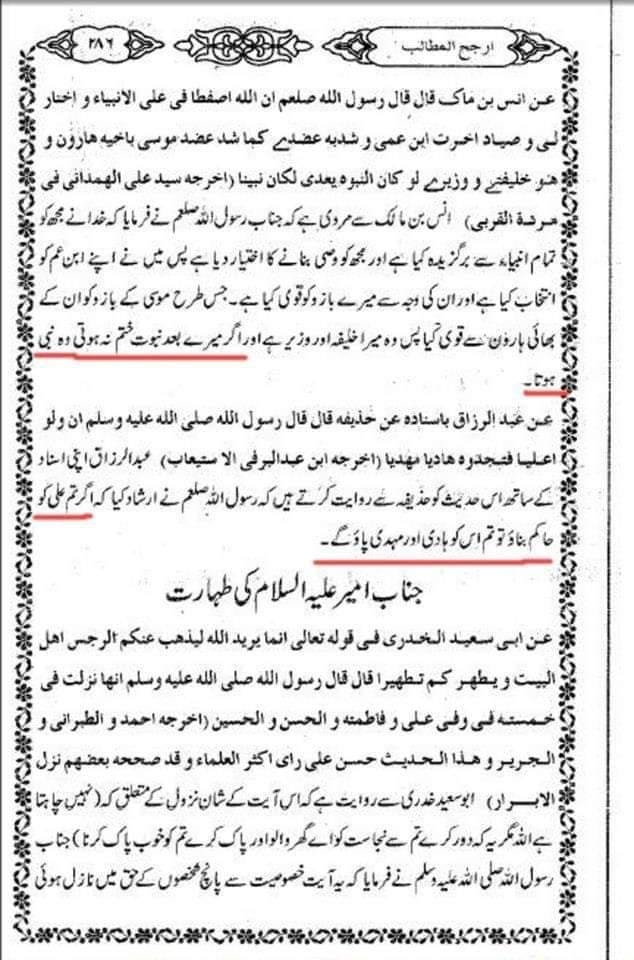 ارجح المطالب
۲۸۶
عن انس بن ماک قال قال رسول الله صلعم ان الله اصفطا فی علی الانبیاء و اختار
لی و صیاد اخرت ابن عمی و شدبه عضدے کما شد عضد موسی باخیه هارون و
هو خلیفتے و وزیرے لو کان النبوه یعدی لکان نبینا (اخرجه سید علی الهمدانی فی
مردة القربی) انس بن مالک سے مروی ہے کہ جناب رسول اللہ صلعم نے فرمایا کہ خدا نے مجھ کو
تمام انبیاء سے برگزیدہ کیا ہے اور مجھ کو وصی بنانے کا اختیار دیا ہے پس میں نے اپنے ابن عم کو
انتخاب کیا ہے اور ان کی وجہ سے میرے بازو کو قوی کیا ہے۔ جس طرح موسی کے بازو کو ان کے
بھائی ہارون سے قوی کیا پس وہ میرا خلیفہ اور وزیر ہے اور اگر میرے بعد نبوت ختم نہ ہوتی وہ نبی
ہوتا۔
عن عبد الرزاق باسناده عن حذیفه قال قال رسول الله صلی الله علیه وسلم ان ولو
اعلیا فتجدوه هادیا مهدیا (اخرجه ابن عبدالبرفی الا ستیعاب) عبدالرزاق اپنی اسناد
کے ساتھ اس حدیث کو حذیفہ سے روایت کرتے ہیں کہ رسول اللہ صلعم نے ارشاد کیا کہ اگر تم علی کو
حاکم بناؤ تو تم اس کو ہادی اور مہدی پاؤ گے۔
جناب امیر علیہ السلام کی طہارت
عن ابی سعید الخدری فی قوله تعالی انما یرید الله لیذهب عنکم الرجس اهل
البیت و یطهر کم تطهیرا قال قال رسول الله صلی الله علیه وسلم انها نزلت فی
خمسته فی وفی علی و فاطمته و الحسن و الحسین (اخرجه احمد و الطبرانی و
الجریر و هذا الحدیث حسن علی رای اکثر العلماء و قد صححه بعضهم نزل
الابرار) ابو سعید خدری سے روایت ہے کہ اس آیت کے شان نزول کے متعلق کہ (نہیں چاہتا
ہے اللہ مگر یہ کہ دور کرے تم سے نجاست کو اے گھر والو اور پاک کرے تم کو خوب پاک کرنا) جناب
رسول اللہ صلی اللہ علیہ وسلم نے فرمایا کہ یہ آیت خصوصیت سے پانچ شخصوں کے حق میں نازل ہوئی